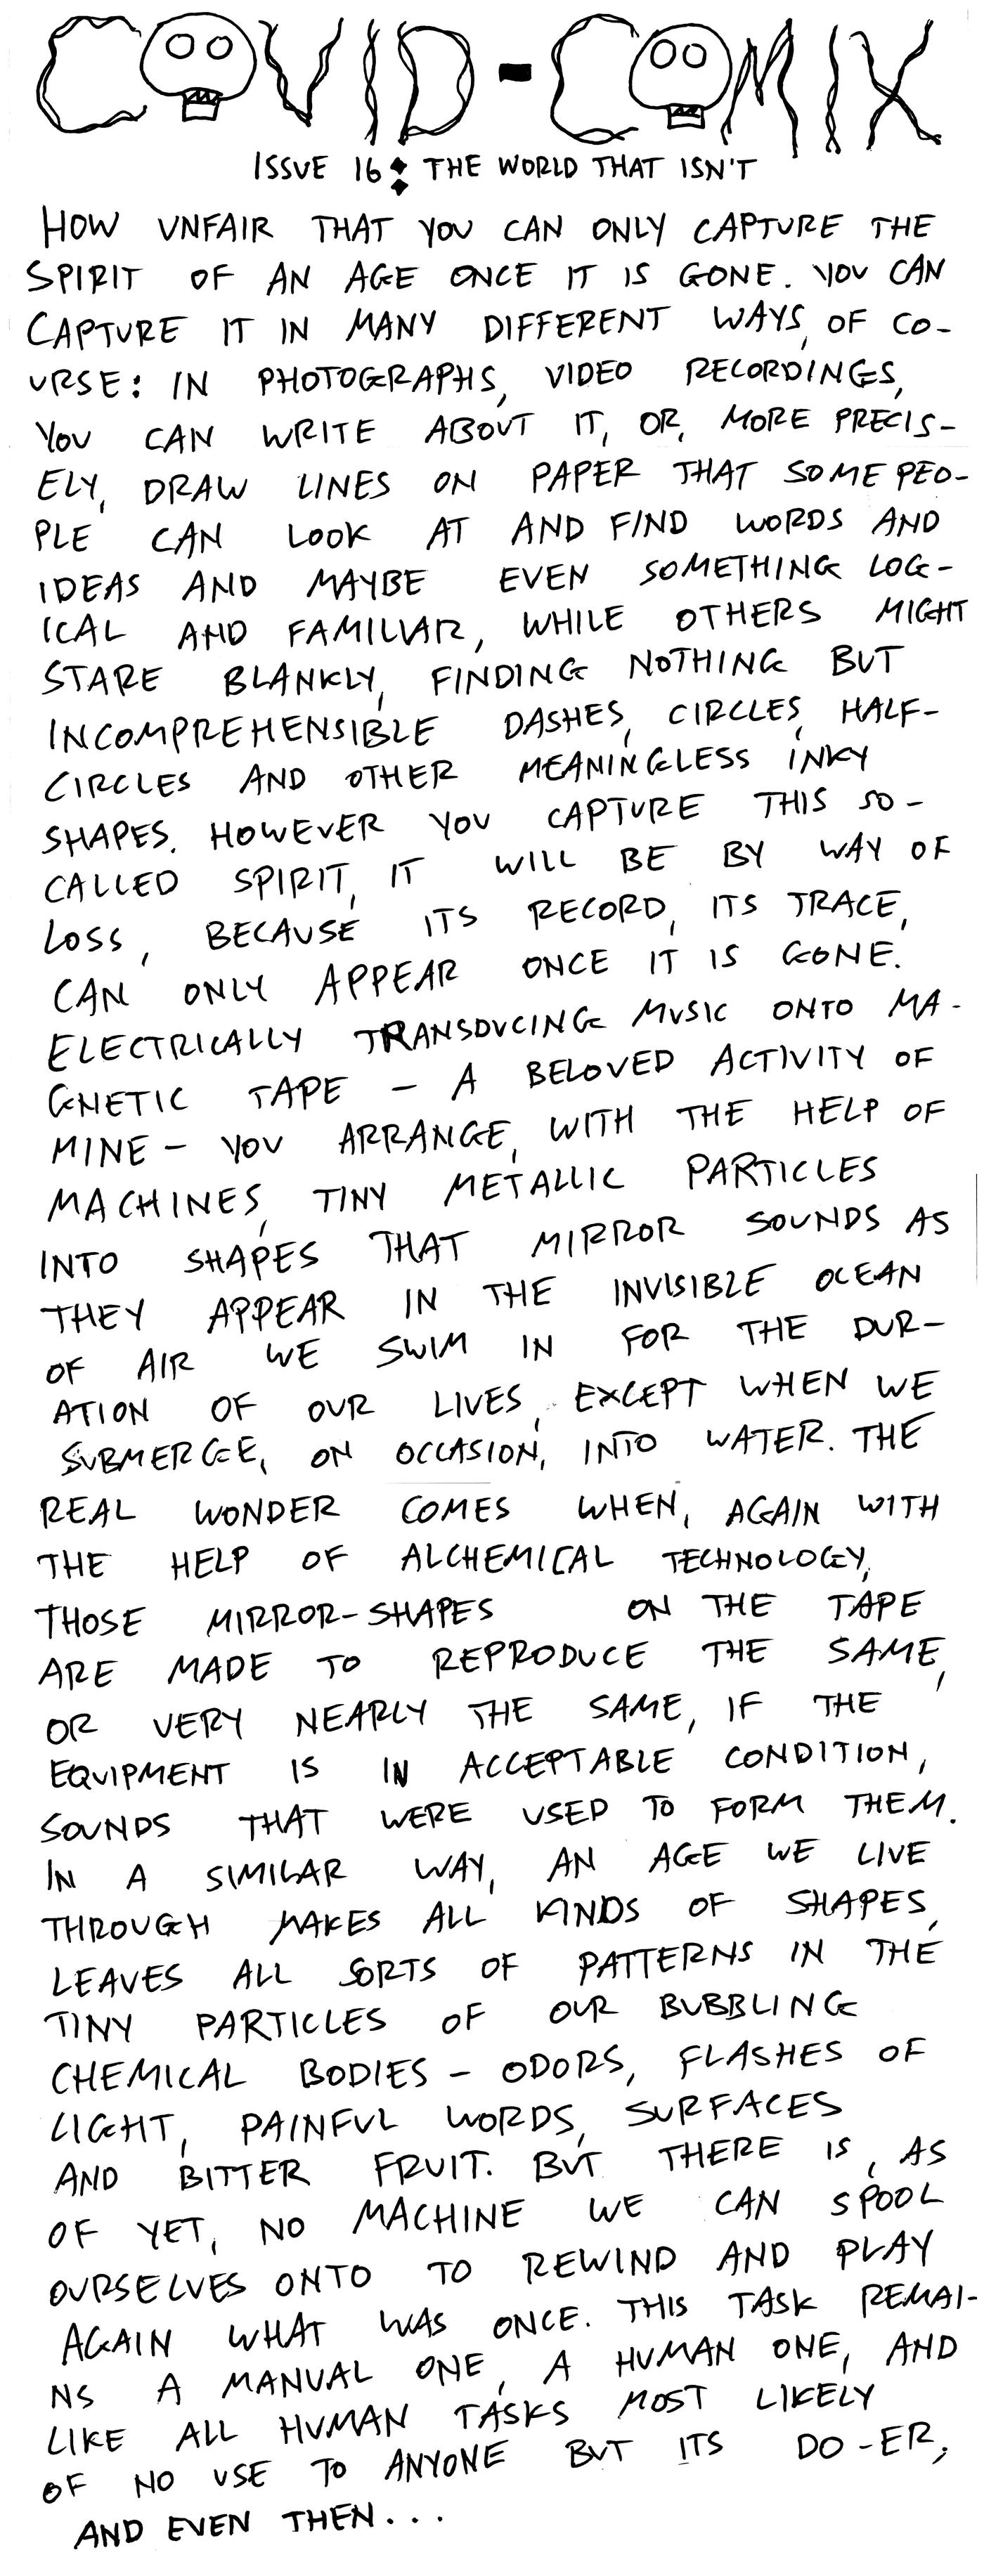 COVID-COMIX
ISSUE 16: THE WORLD THAT ISN'T
HOW UNFAIR THAT YOU CAN ONLY CAPTURE THE
SPIRIT OF AN AGE ONCE IT IS GONE. YOU CAN
CAPTURE IT IN MANY DIFFERENT WAYS, OF CO-
URSE: IN PHOTOGRAPHS, VIDEO RECORDINGS,
YOU CAN WRITE ABOUT IT, OR, MORE PRECIS-
ELY, DRAW LINES ON PAPER THAT SOME PEO-
PLE CAN LOOK AT AND FIND WORDS AND
IDEAS AND MAYBE EVEN SOMETHING LOG-
ICAL AND FAMILIAR, WHILE OTHERS MIGHT
STARE BLANKLY, FINDING NOTHING BUT
INCOMPREHENSIBLE DASHES, CIRCLES, HALF-
CIRCLES AND OTHER MEANINGLESS INKY
SHAPES. HOWEVER YOU CAPTURE THIS SO-
CALLED SPIRIT, IT WILL BE BY WAY OF
LOSS, BECAUSE ITS RECORD, ITS TRACE,
CAN ONLY APPEAR ONCE IT IS GONE.
ELECTRICALLY TRANSDUCING MUSIC ONTO MA-
GNETIC TAPE - A BELOVED ACTIVITY OF
MINE - YOU ARRANGE, WITH THE HELP OF
MACHINES, TINY METALLIC PARTICLES
INTO SHAPES THAT MIRROR SOUNDS AS
THEY APPEAR IN THE INVISIBLE OCEAN
OF AIR WE SWIM IN FOR THE DUR-
ATION OF OUR LIVES, EXCEPT WHEN WE
SUBMERGE, ON OCCASION, INTO WATER. THE
REAL WONDER COMES WHEN, AGAIN WITH
THE HELP OF ALCHEMICAL TECHNOLOGY,
THOSE MIRROR-SHAPES ON THE TAPE
ARE MADE TO REPRODUCE THE SAME,
OR VERY NEARLY THE SAME, IF THE
EQUIPMENT IS IN ACCEPTABLE CONDITION,
SOUNDS THAT WERE USED TO FORM THEM.
IN A SIMILAR WAY, AN AGE WE LIVE
THROUGH MAKES ALL KINDS OF SHAPES,
LEAVES ALL SORTS OF PATTERNS IN THE
TINY PARTICLES OF OUR BUBBLING
CHEMICAL BODIES - ODORS, FLASHES OF
LIGHT, PAINFUL WORDS, SURFACES
AND BITTER FRUIT. BUT THERE IS, AS
OF YET, NO MACHINE WE CAN SPOOL
OURSELVES ONTO TO REWIND AND PLAY
AGAIN WHAT WAS ONCE. THIS TASK REMAI-
NS A MANUAL ONE, A HUMAN ONE, AND
LIKE ALL HUMAN TASKS MOST LIKELY
OF NO USE TO ANYONE BUT ITS DO-ER,
AND EVEN THEN...